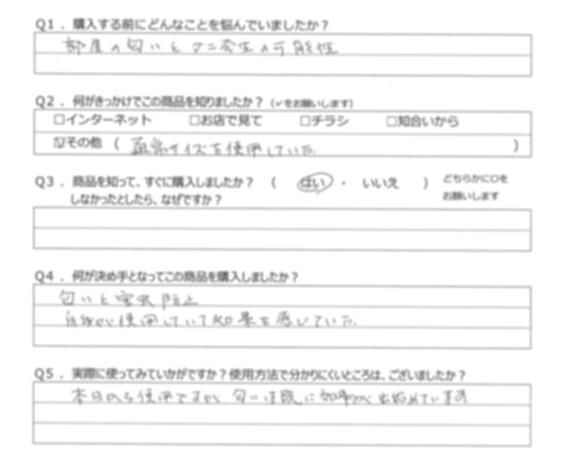 Q1．購入する前にどんなことを悩んでいましたか？
部屋の匂いとダニ発生の可能性
Q2．何がきっかけでこの商品を知りましたか？（✓をお願いします）
□インターネット □お店で見て □チラシ □知合いから
☑その他（ 通常サイズを使用していた ）
Q3．商品を知って、すぐに購入しましたか？（ はい ・ いいえ ） どちらかに○を
しなかったとしたら、なぜですか？ お願いします
Q4．何が決め手となってこの商品を購入しましたか？
匂いと害虫防止
自分が使用していて効果を感じていた
Q5．実際に使ってみていかがですか？使用方法で分かりにくいところは、ございましたか？
本日から使用ですが匂いは既に効果が出始めています